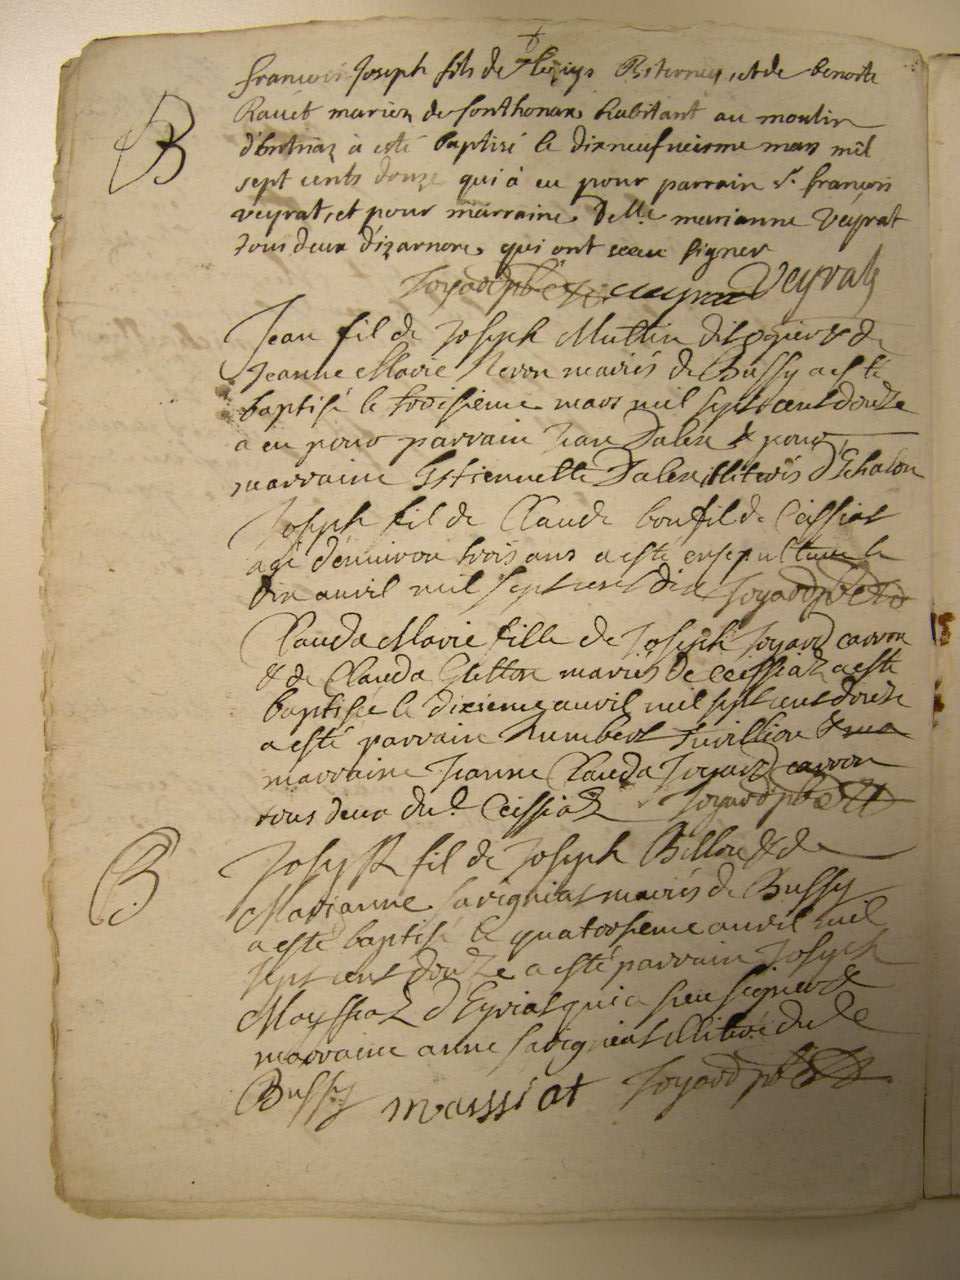 françois Joseph fils de Biterney, et de benoite
Ravet mariez de fonthonax habitant au moulin
à esté baptisé le dixneufvieme mars mil
B
sept cents douze qui à eu pour parrain Sr. françois
veyrat, et pour marraine Delle. marianne Veyrat
tous deux dizarnore, qui ont sceu signer
Joyard pbre veyrat Veyrat
Jean fil de Joseph Muttin & de
Jeanne Marie Neron mariés de Bussy a esté
baptisé le troisieme mars mil sept cent douze
a eu pour parrain Jean Dalex & pour
marraine Estiennette Dalex illiterés d'Echalon
Joseph fil de Claude bonfil de Ceissiat
agé d'environ trois ans a esté ensepulturé le
dix auvil mil sept cent dix Joyard pbre
Clauda Marie fille de Joseph Joyard carron
& de Clauda Gletton mariés de Ceissiat a esté
baptisée le dixieme auvil mil sept cent douze
a esté parrain Humbert Tuvillion &
marraine Jeanne Clauda Joyard carron
tous deux dud. Ceissiat Joyard pbre
B
Joseph fil de Joseph Billon & de
Marianne Savigniat mariés de Bussy
a esté baptisé le quatorsieme auvil mil
sept cent douze a esté parrain Joseph
Mayssiat d'Eyriat qui a sceu signer &
marraine anne Savigniat illiteré dud.
Bussy massiat Joyard pbre